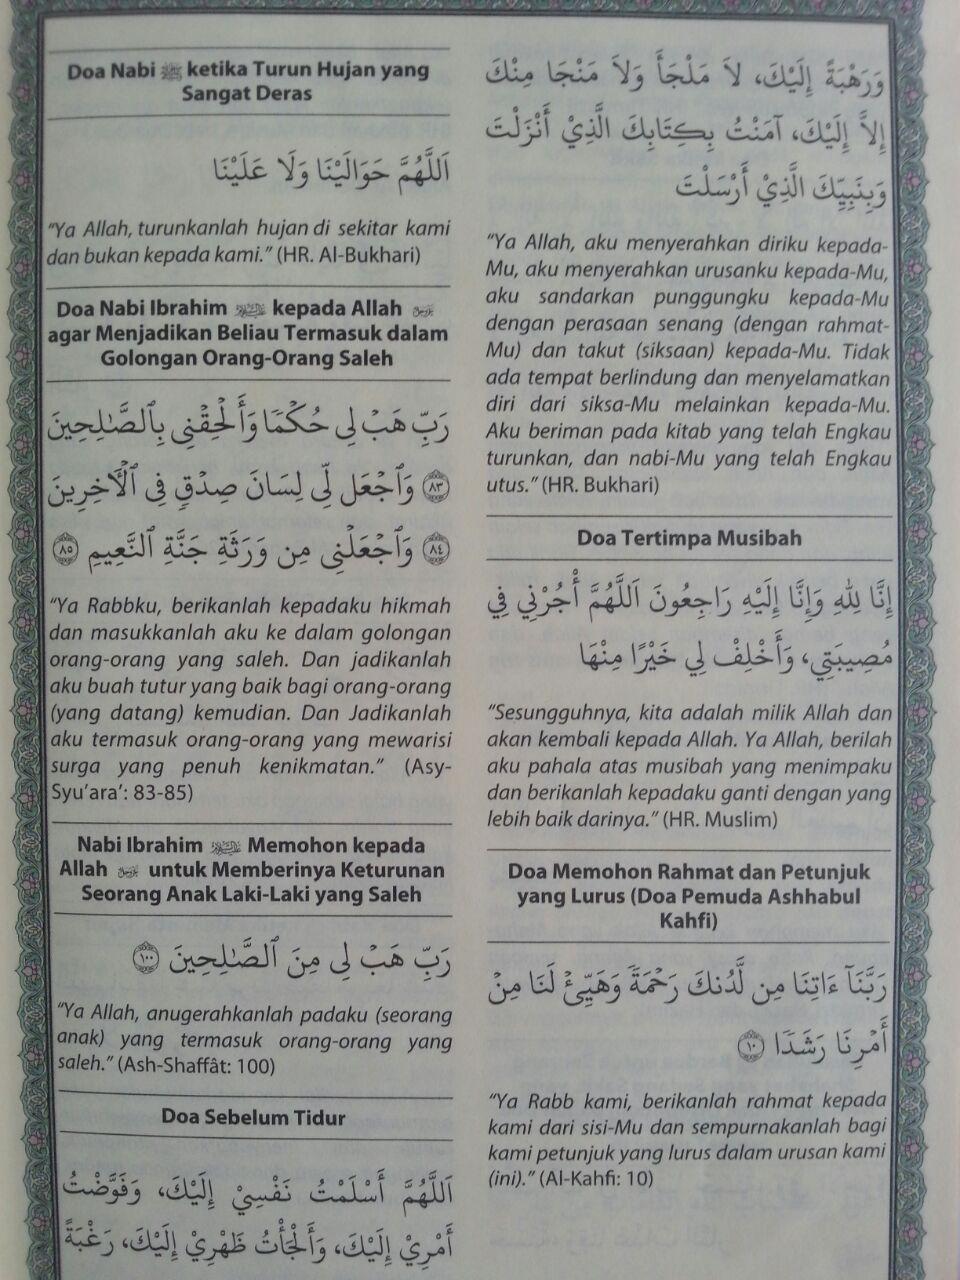 Doa Nabi ﷺ ketika Turun Hujan yang
Sangat Deras
اَللَّهُمَّ حَوَالَيْنَا وَلَا عَلَيْنَا
“Ya Allah, turunkanlah hujan di sekitar kami
dan bukan kepada kami.” (HR. Al-Bukhari)
Doa Nabi Ibrahim kepada Allah
agar Menjadikan Beliau Termasuk dalam
Golongan Orang-Orang Saleh
رَبِّ هَبْ لِي حُكْمًا وَأَلْحِقْنِي بِٱلصَّٰلِحِينَ
﴿٨٣﴾ وَٱجْعَل لِّي لِسَانَ صِدْقٍ فِي ٱلْآخِرِينَ
﴿٨٤﴾ وَٱجْعَلْنِي مِن وَرَثَةِ جَنَّةِ ٱلنَّعِيمِ ﴿٨٥﴾
“Ya Rabbku, berikanlah kepadaku hikmah
dan masukkanlah aku ke dalam golongan
orang-orang yang saleh. Dan jadikanlah
aku buah tutur yang baik bagi orang-orang
(yang datang) kemudian. Dan Jadikanlah
aku termasuk orang-orang yang mewarisi
surga yang penuh kenikmatan.” (Asy-
Syu’ara’: 83-85)
Nabi Ibrahim Memohon kepada
Allah untuk Memberinya Keturunan
Seorang Anak Laki-Laki yang Saleh
رَبِّ هَبْ لِي مِنَ ٱلصَّٰلِحِينَ ﴿١٠٠﴾
“Ya Allah, anugerahkanlah padaku (seorang
anak) yang termasuk orang-orang yang
saleh.” (Ash-Shaffât: 100)
Doa Sebelum Tidur
اَللَّهُمَّ أَسْلَمْتُ نَفْسِيْ إِلَيْكَ، وَفَوَّضْتُ
أَمْرِيْ إِلَيْكَ، وَأَلْجَأْتُ ظَهْرِيْ إِلَيْكَ، رَغْبَةً
وَرَهْبَةً إِلَيْكَ، لاَ مَلْجَأَ وَلاَ مَنْجَا مِنْكَ
إِلاَّ إِلَيْكَ، آمَنْتُ بِكِتَابِكَ الَّذِيْ أَنْزَلْتَ
وَبِنَبِيِّكَ الَّذِيْ أَرْسَلْتَ
“Ya Allah, aku menyerahkan diriku kepada-
Mu, aku menyerahkan urusanku kepada-Mu,
aku sandarkan punggungku kepada-Mu
dengan perasaan senang (dengan rahmat-
Mu) dan takut (siksaan) kepada-Mu. Tidak
ada tempat berlindung dan menyelamatkan
diri dari siksa-Mu melainkan kepada-Mu.
Aku beriman pada kitab yang telah Engkau
turunkan, dan nabi-Mu yang telah Engkau
utus.” (HR. Bukhari)
Doa Tertimpa Musibah
إِنَّا لِلّٰهِ وَإِنَّا إِلَيْهِ رَاجِعُونَ اَللَّهُمَّ أْجُرْنِي فِي
مُصِيبَتِي، وَأَخْلِفْ لِي خَيْرًا مِنْهَا
“Sesungguhnya, kita adalah milik Allah dan
akan kembali kepada Allah. Ya Allah, berilah
aku pahala atas musibah yang menimpaku
dan berikanlah kepadaku ganti dengan yang
lebih baik darinya.” (HR. Muslim)
Doa Memohon Rahmat dan Petunjuk
yang Lurus (Doa Pemuda Ashhabul
Kahfi)
رَبَّنَآ ءَاتِنَا مِن لَّدُنكَ رَحْمَةً وَهَيِّئْ لَنَا مِنْ
أَمْرِنَا رَشَدًا ﴿١٠﴾
“Ya Rabb kami, berikanlah rahmat kepada
kami dari sisi-Mu dan sempurnakanlah bagi
kami petunjuk yang lurus dalam urusan kami
(ini).” (Al-Kahfi: 10)